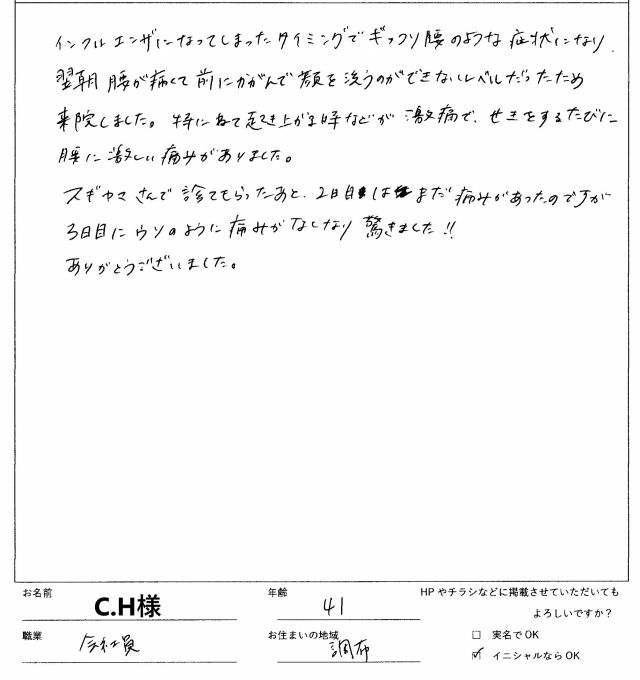 インフルエンザになってしまったタイミングでギックリ腰のような症状になり、
翌朝腰が痛くて前にかがんで顔を洗うのができないレベルだったため
来院しました。特にねて起き上がる時などが激痛で、せきをするたびに
腰に激しい痛みがありました。
スギヤマさんで診てもらったあと、2日目はまだ痛みがあったのですが
3日目にウソのように痛みがなくなり驚きました!!
ありがとうございました。
お名前 C.H様 年齢 41 HPやチラシなどに掲載させていただいても
よろしいですか?
職業 会社員 お住まいの地域 調布 □ 実名でOK
☑ イニシャルならOK